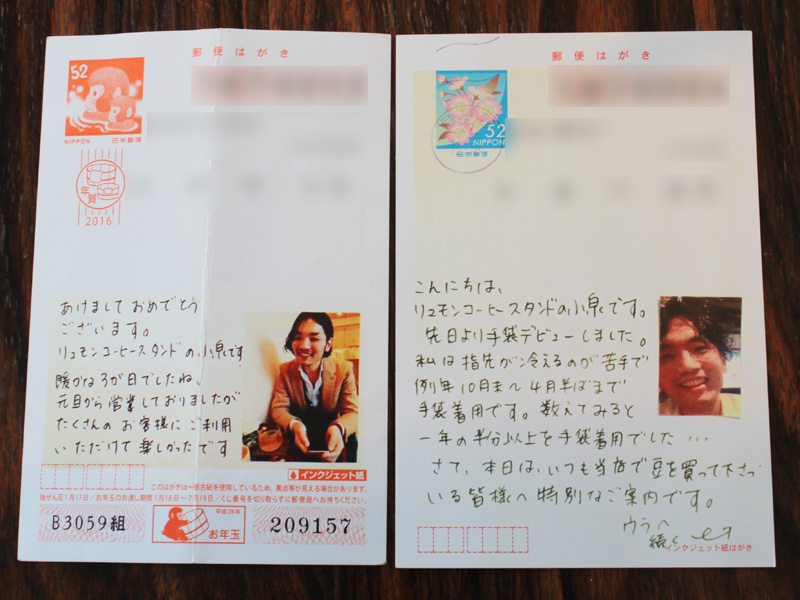 郵便はがき
52
NIPPON 日本郵便
年賀
2016
あけまして おめでとう
ございます。
リュモンコーヒースタンドの小泉です
暖かな3が日でしたね。
元旦から営業しておりましたが
たくさんの お客様に ご利用
いただけて 楽しかったです
インクジェット紙
このはがきは一部古紙を使用しているため、黒点等が見える場合があります。
抽せん日1月17日/お年玉のお渡し期間1月18日〜7月19日/くじ番号を切り取らずに郵便局へお持ちください。
B3059組
平成28年
お年玉
209157
郵便はがき
52
NIPPON
日本郵便
こんにちは、
リュモンコーヒースタンドの小泉です。
先日より手袋デビューしました。
私は指先が冷えるのが苦手で
例年10月末〜4月半ばまで
手袋着用です。数えてみると
一年の半分以上を手袋着用でした…
さて、本日は、いつも当店で豆を買って下さって
いる皆様へ特別なご案内です。
ウラへ
続く
インクジェット紙はがき